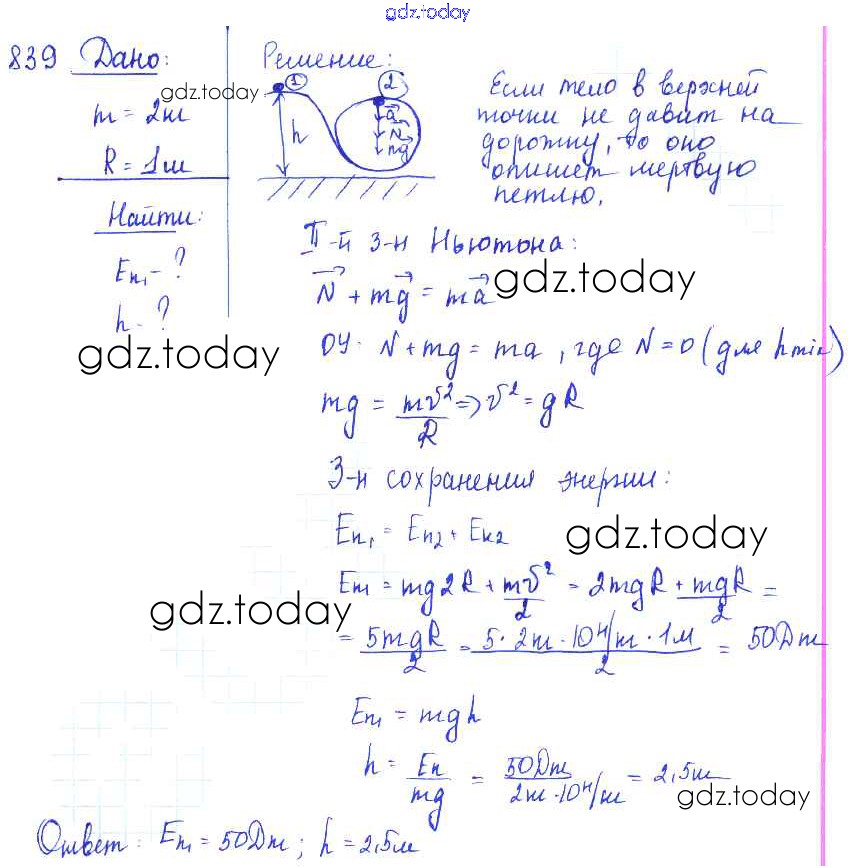 gdz.today
839 Дано:
m = 2кг
R = 1м
Найти:
Eп₁ - ?
h - ?
gdz.today
gdz.today
Решение:
1
2
h
a
N
mg
Если тело в верхней
точки не давит на
дорожку, то оно
опишет мертвую
петлю.
II-й з-н Ньютона:
N + mg = ma
gdz.today
ОУ: N + mg = ma, где N = 0 (для hmin)
mg = mv²/R => v² = gR
З-н сохранения энергии:
Eп₁ = Eп2 + Eк2
gdz.today
Eп₁ = mg2R + mv²/2 = 2mgR + mgR/2 =
gdz.today
= 5mgR/2 = 5·2кг·10Н/кг·1м/2 = 50Дж
Eп₁ = mgh
h = Eп/mg = 50Дж/2кг·10Н/кг = 2,5м
gdz.today
Ответ: Eп₁ = 50Дж; h = 2,5м